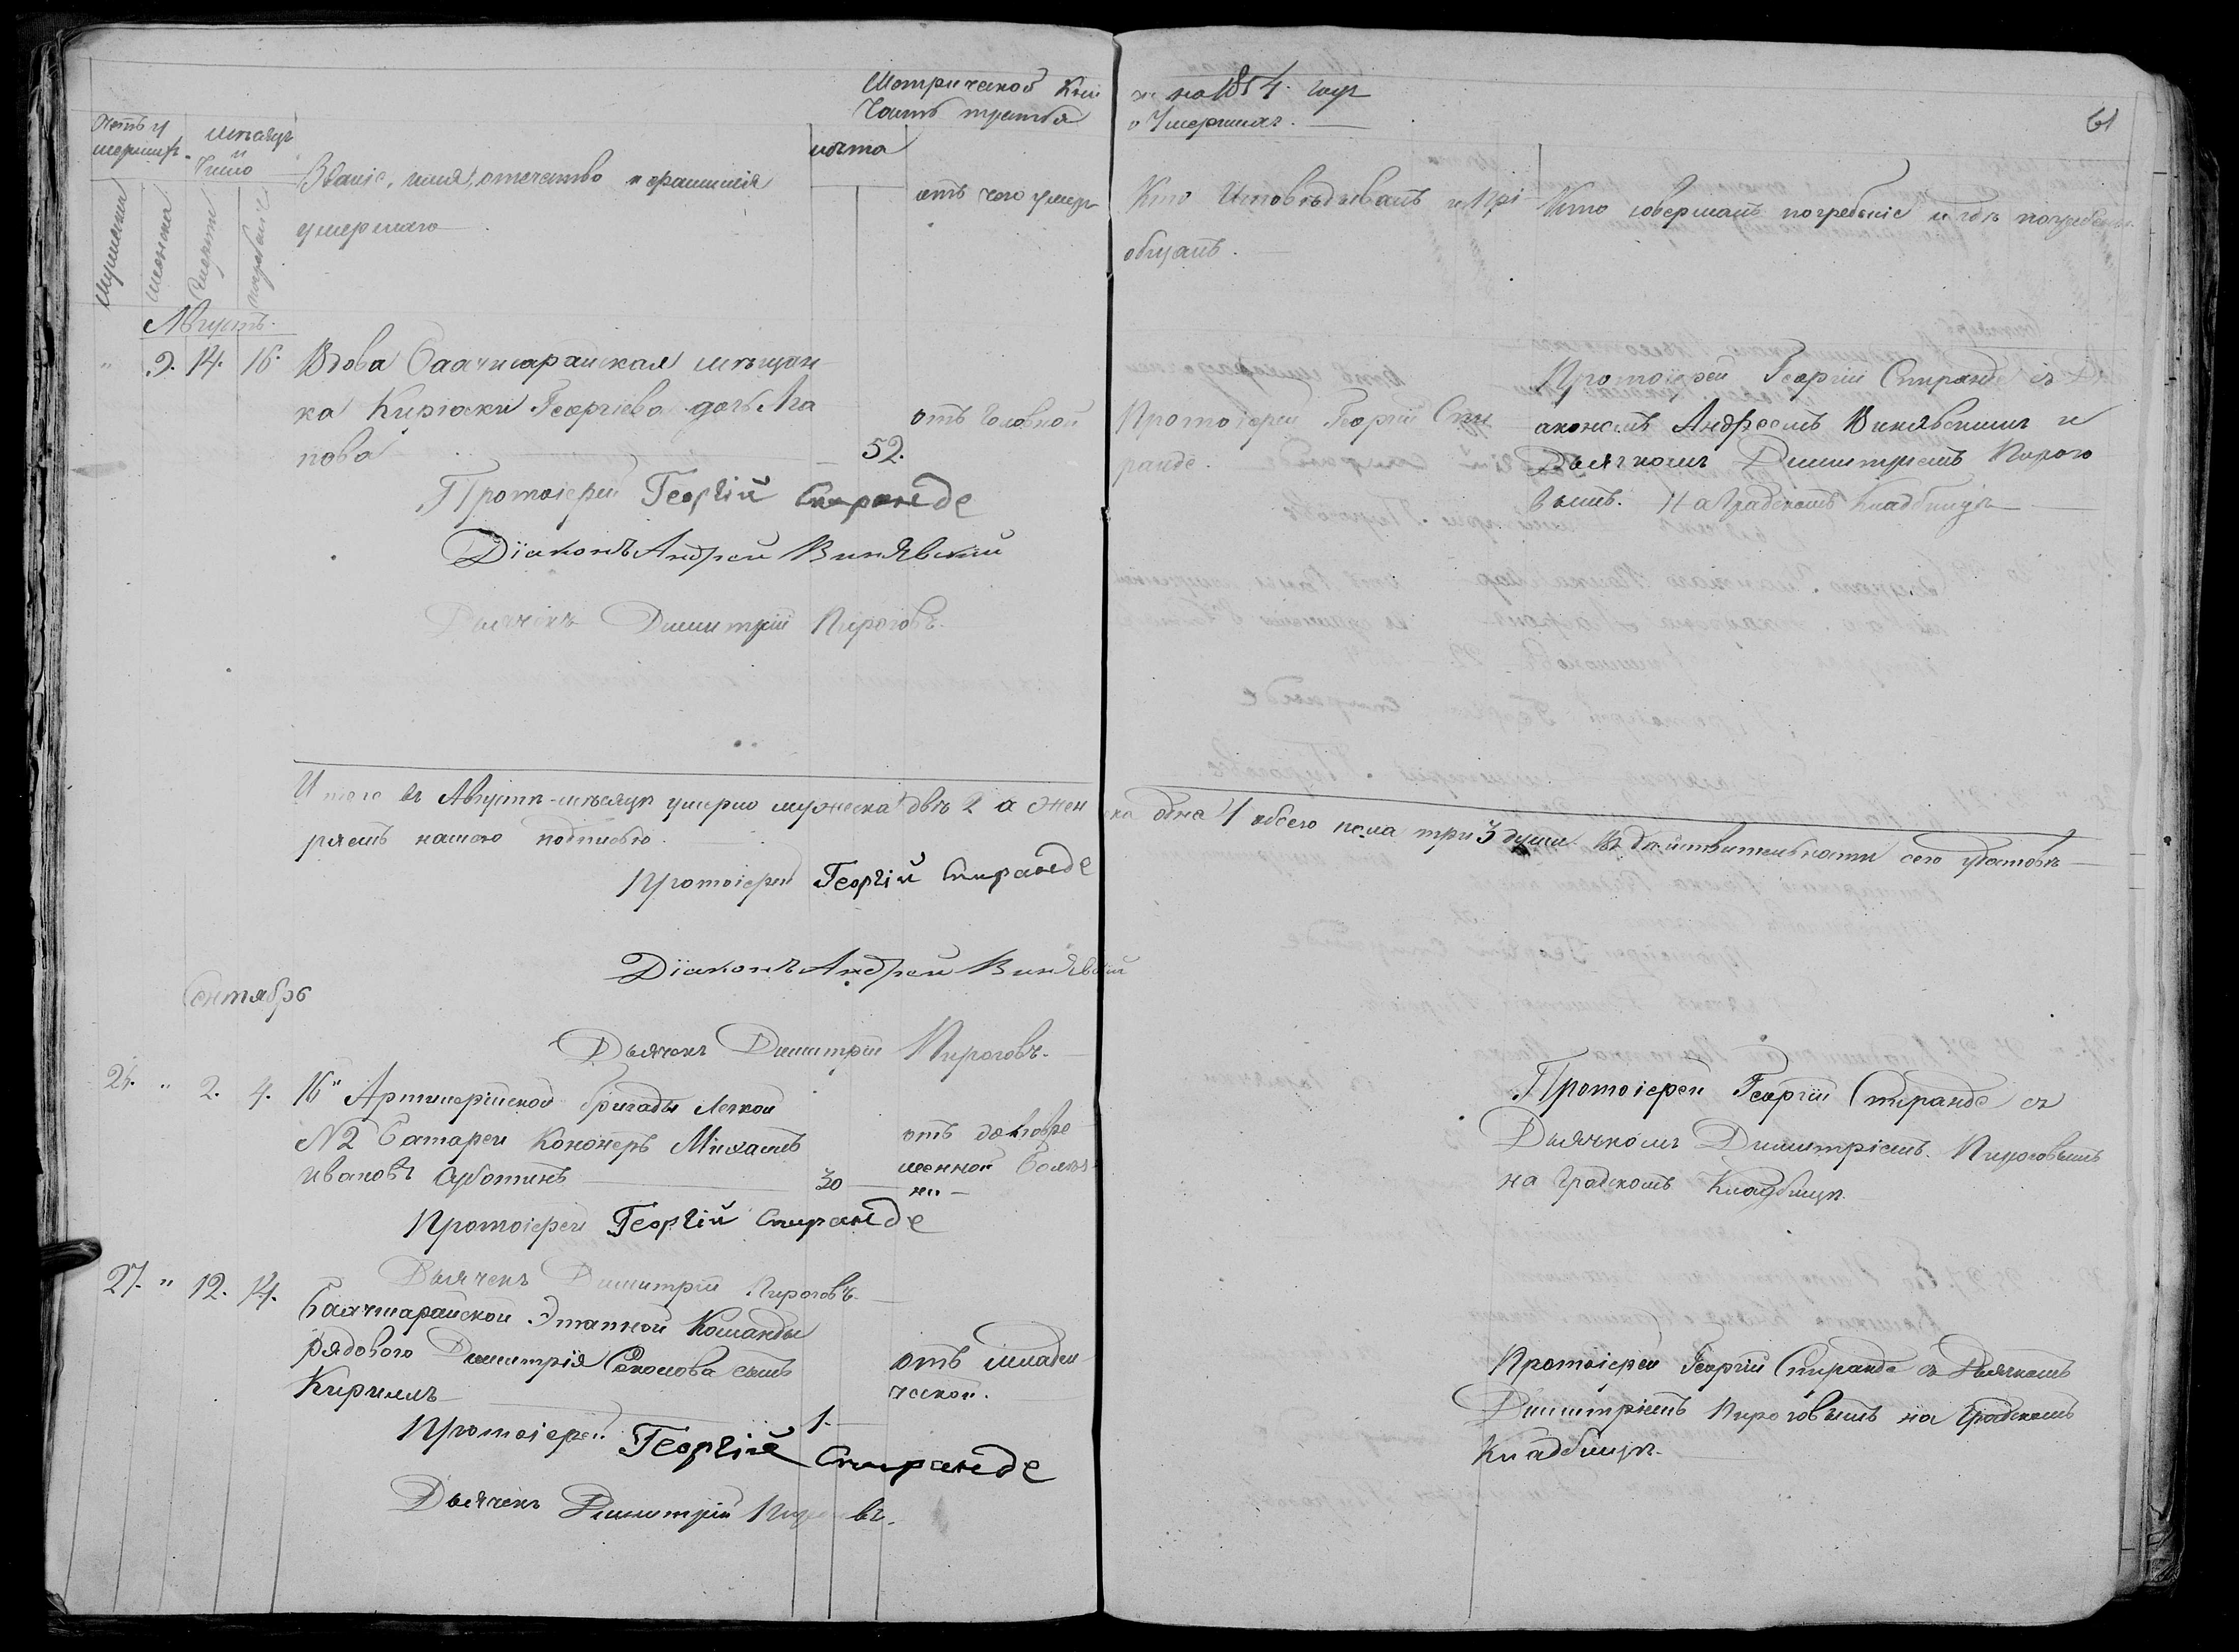 Метрической Кни
Часть третья
ги на 1854. годъ
о Умершихъ.
61
Счетъ у
мершихъ.
Мѣсяцъ
и
Число
Мужеска
Женска
Смерти
погребенiе
Званiе, имя, отечество и фамилiя
умершаго
лѣта
отъ чего умеръ
Кто Исповѣдывалъ и Прi
общалъ.
Кто совершалъ погребенiе и гдѣ погребены
Августъ.
" 9. 14. 16.
Вдова Бахчисарайская мѣщан
ка Кирiаки Георгiева дочь Ага
пова
52.
отъ Головной
Протоiерей Георгiй Спи
ранде.
Протоiерей Георгiй Спиранде съ Дi
акономъ Андреемъ Винявскимъ и
Дьячкомъ Димитрiемъ Пирого
вымъ. На Градскомъ Кладбищѣ
Протоiерей Георгiй Спиранде
Дiаконъ Андрей Винявскiй
Дьячекъ Димитрiй Пироговъ.
Итого въ Августѣ мѣсяцѣ умерло мужеска двѣ 2 а жен
ска одна 1 обоего пола три 3 души. Въ дѣйствительности сего удостовѣ
ряемъ нашею подписью.
Протоiерей Георгiй Спиранде
Дiаконъ Андрей Винявскiй
Дьячекъ Димитрiй Пироговъ.
Сентябрь
26. " 2. 4.
16й Артиллерiйской бригады Легкой
№2 Батареи Канонеръ Михаилъ
Ивановъ Суботинъ
30
отъ долговре
менной болѣз
ни
Протоiерей Георгiй Спиранде съ
Дьячкомъ Димитрiемъ Пироговымъ
на Градскомъ Кладбищѣ.
Протоiерей Георгiй Спиранде
Дьячекъ Димитрiй Пироговъ.
27. " 12. 14.
Бахчисарайской Этапной Команды
рядового Димитрiя Соколова сынъ
Кириллъ
1.
отъ младен
ческой.
Протоiерей Георгiй Спиранде съ Дьячкомъ
Димитрiемъ Пироговымъ на Градскомъ
Кладбищѣ.
Протоiерей Георгiй Спиранде
Дьячекъ Димитрiй Пироговъ.